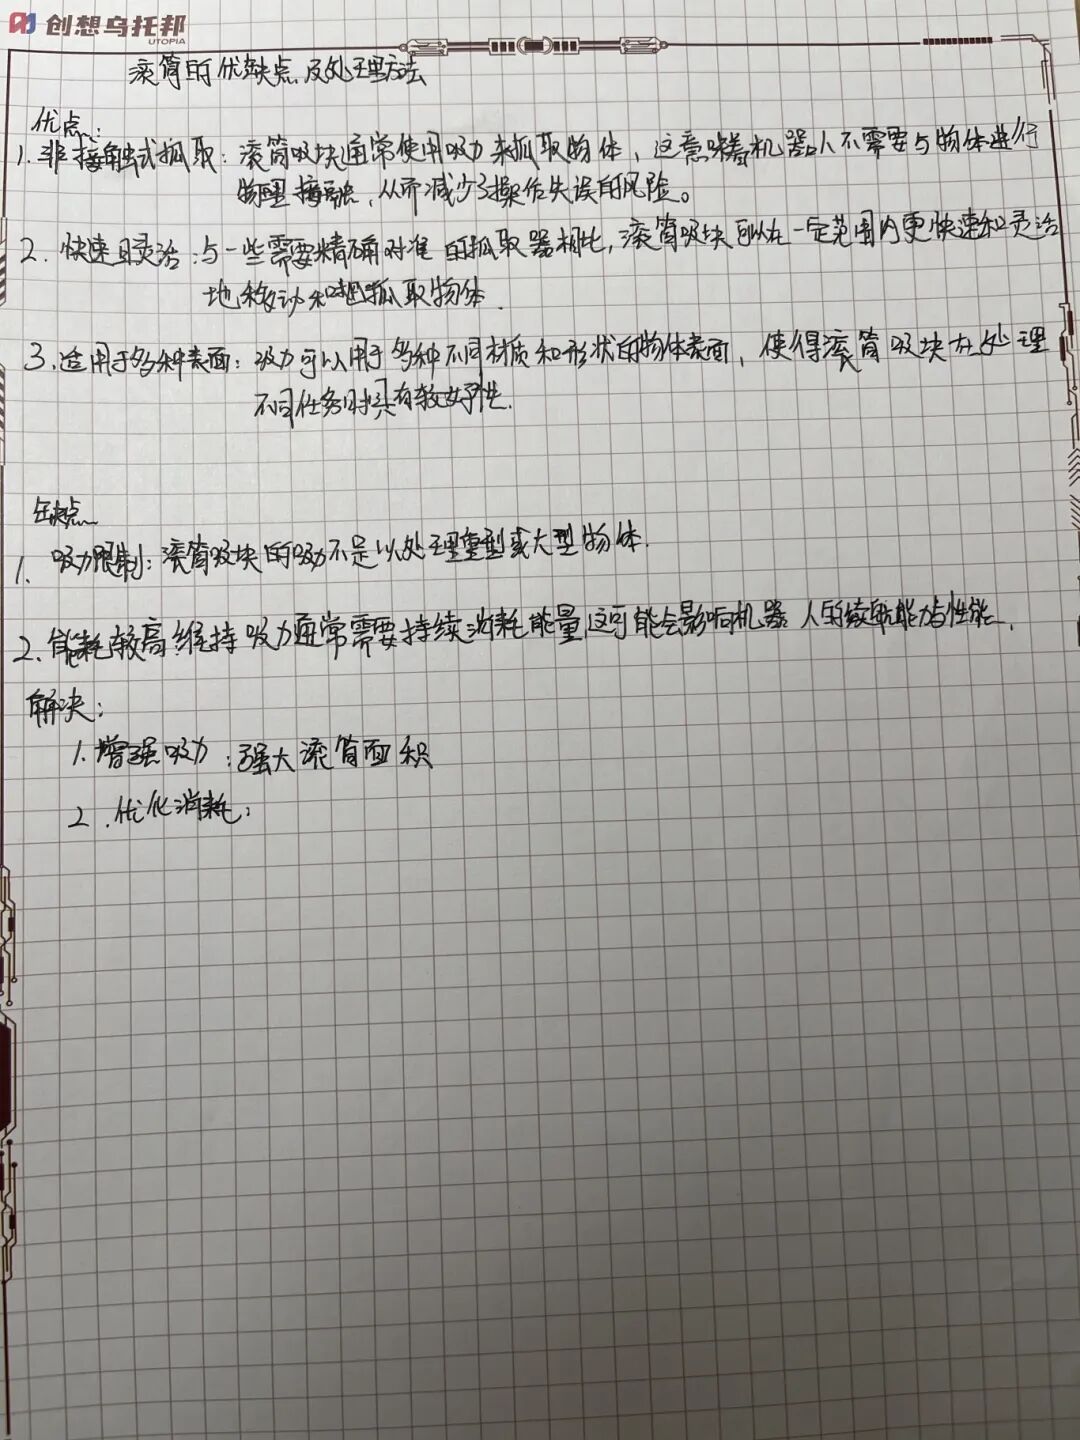 创想乌托邦
UTOPIA
滚筒的优缺点及处理方法
优点:
1.非接触式抓取:滚筒吸块通常使用吸力来抓取物体,这意味着机器人不需要与物体进行
物理接触,从而减少了操作失误的风险。
2.快速且灵活:与一些需要精确对准的抓取器相比,滚筒吸块可以在一定范围内更快速和灵活
地移动和抓取物体.
3.适用于多种表面:吸力可以用于多种不同材质和形状的物体表面,使得滚筒吸块在处理
不同任务时具有较好性.
缺点
1.吸力限制:滚筒吸块的吸力不足以处理重型或大型物体.
2.能耗较高:维持吸力通常需要持续消耗能量,这可能会影响机器人的续航能力与性能.
解决:
1.增强吸力:强大滚筒面积
2.优化消耗: